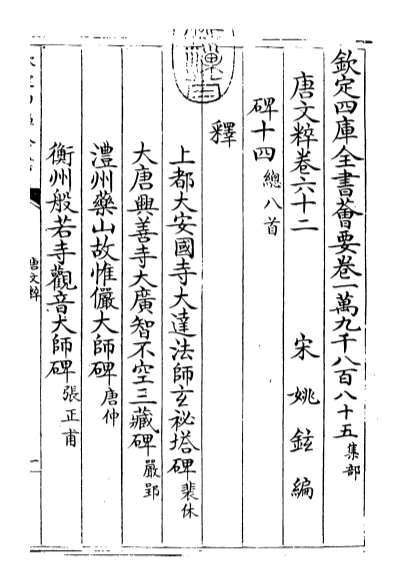 欽定四庫全書薈要卷一萬九千八百八十五 集部
唐文粹卷六十二 宋 姚鉉 編
碑十四 總八首
釋
上都大安國寺大達法師玄祕塔碑 裴休
大唐興善寺大廣智不空三藏碑 嚴郢
澧州藥山故惟儼大師碑 唐仲
衡州般若寺觀音大師碑 張正甫
唐文粹
一